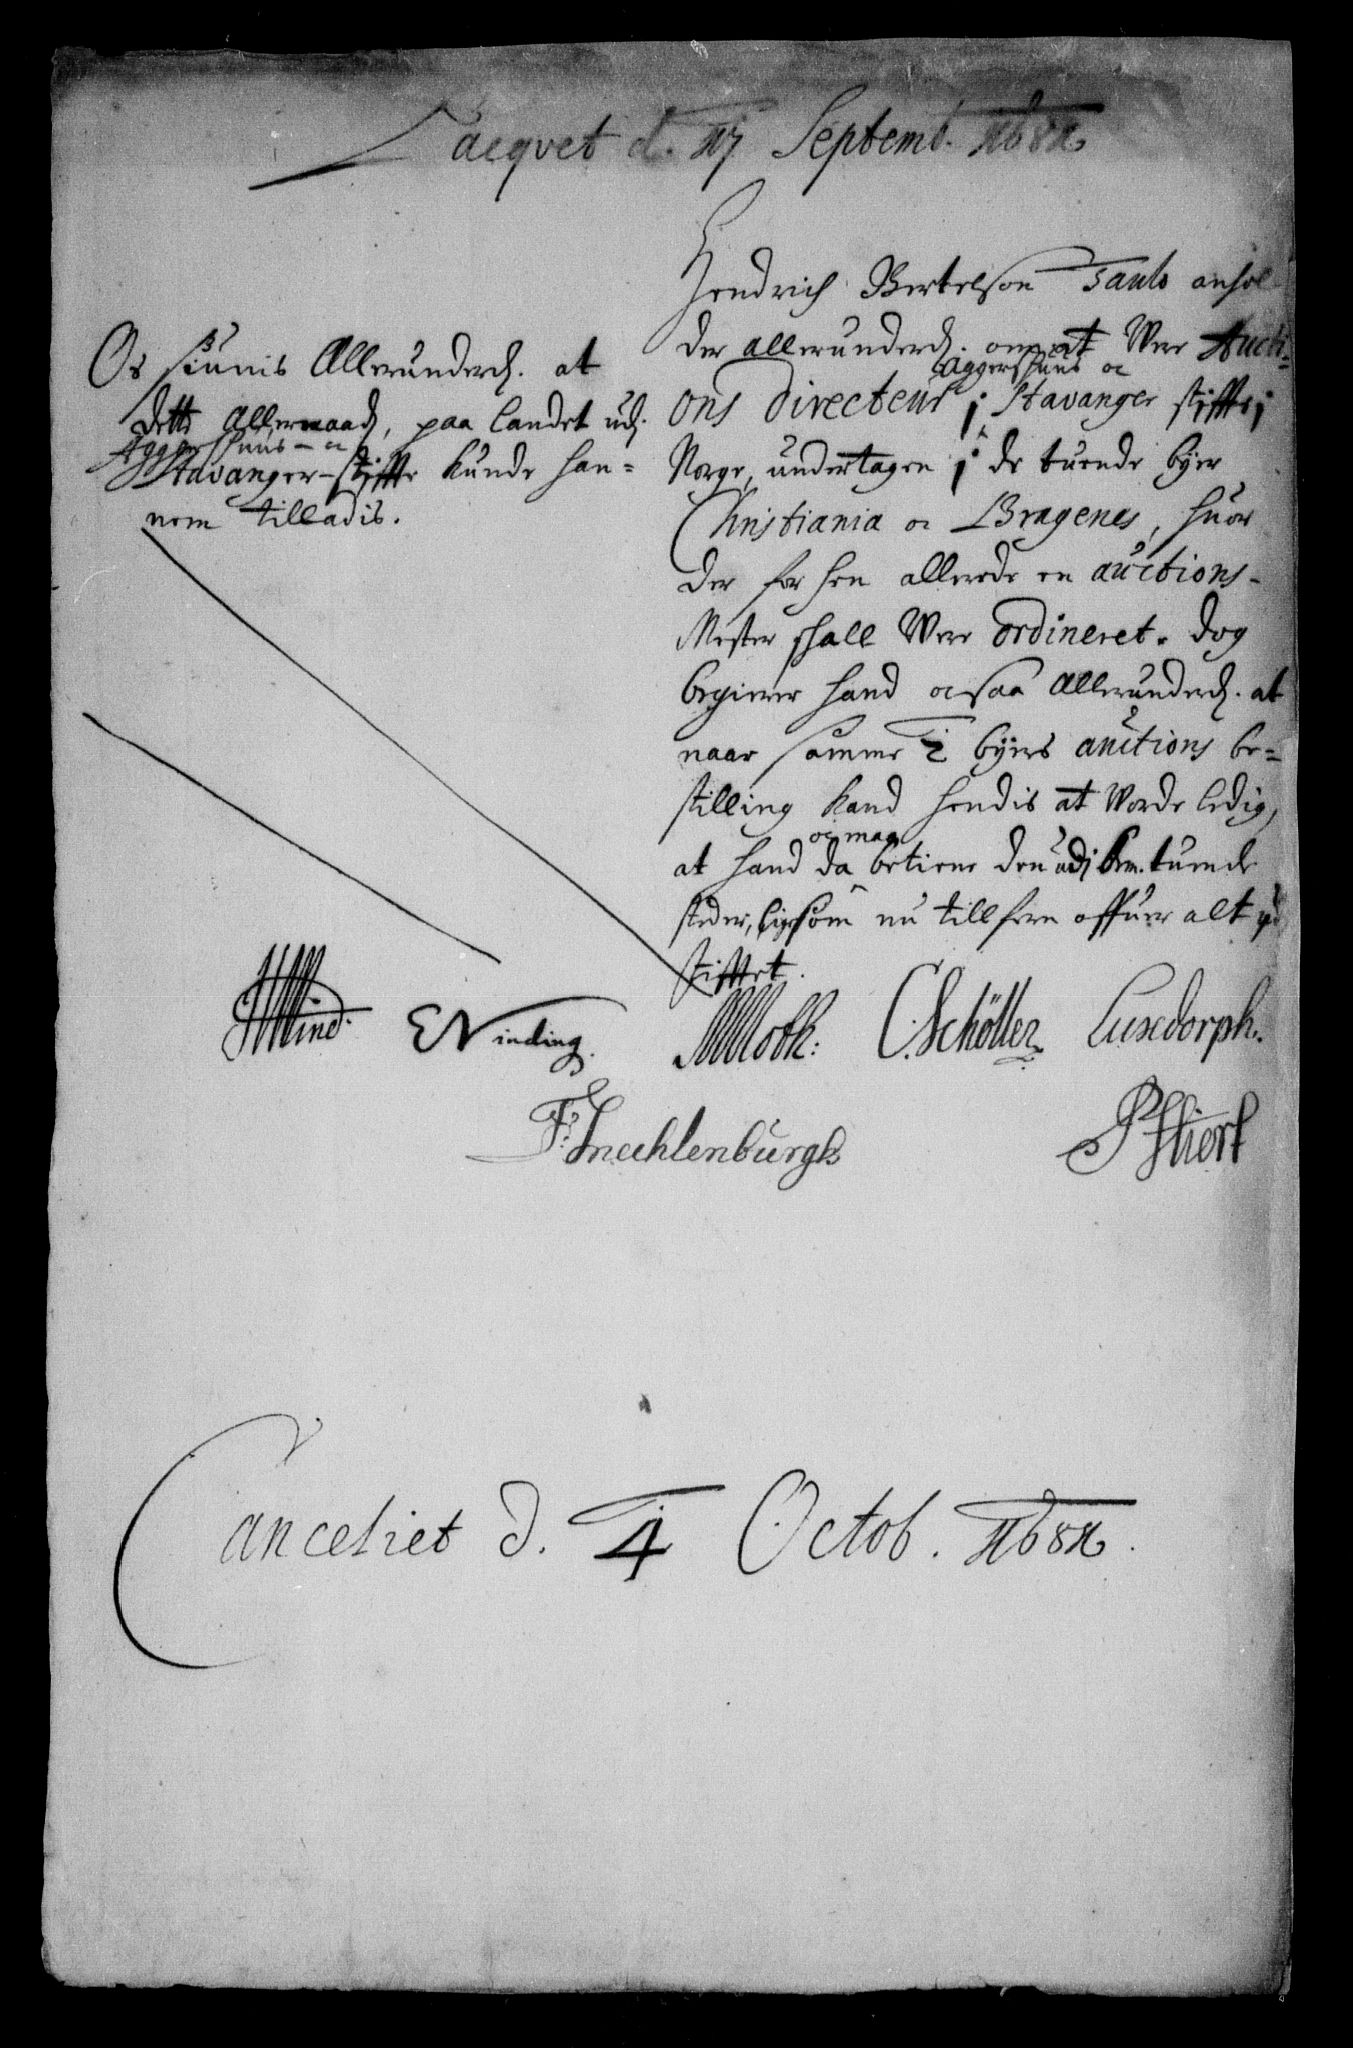 Lacqvet d. 17 Septemb. 1681
Hendrich Bertelson Tauls anhol-
der allerunderd. om at Were Aucti-
Aggershuus oc
ons Directeur i Stavanger stiffte i
Norge, undertagen i de tuende byer
Christiania oc Bragenes, huor
der for hen allerede en auctions-
Mester shall Were ordineret. dog
begierer hand ocsaa Allerunderd. at
naar samme 2 byers auctions be-
stilling kand hendis at Worde ledig,
oc maa
at hand da betiene den udi bem. tuende
steder, ligesom nu tillforn offuer alt
stifftet.
Os siunis Allerunderd. at
dette Allernaad, paa landet udj
Aggershuus - oc
Stavanger-stiffte kunde han-
nem tilladis.
Wind. E Vinding. M Moth: C. Schöller Luxdorph.
F: Mecklenburgh P Hiort
Canceliet d. 4 Octob. 1681.